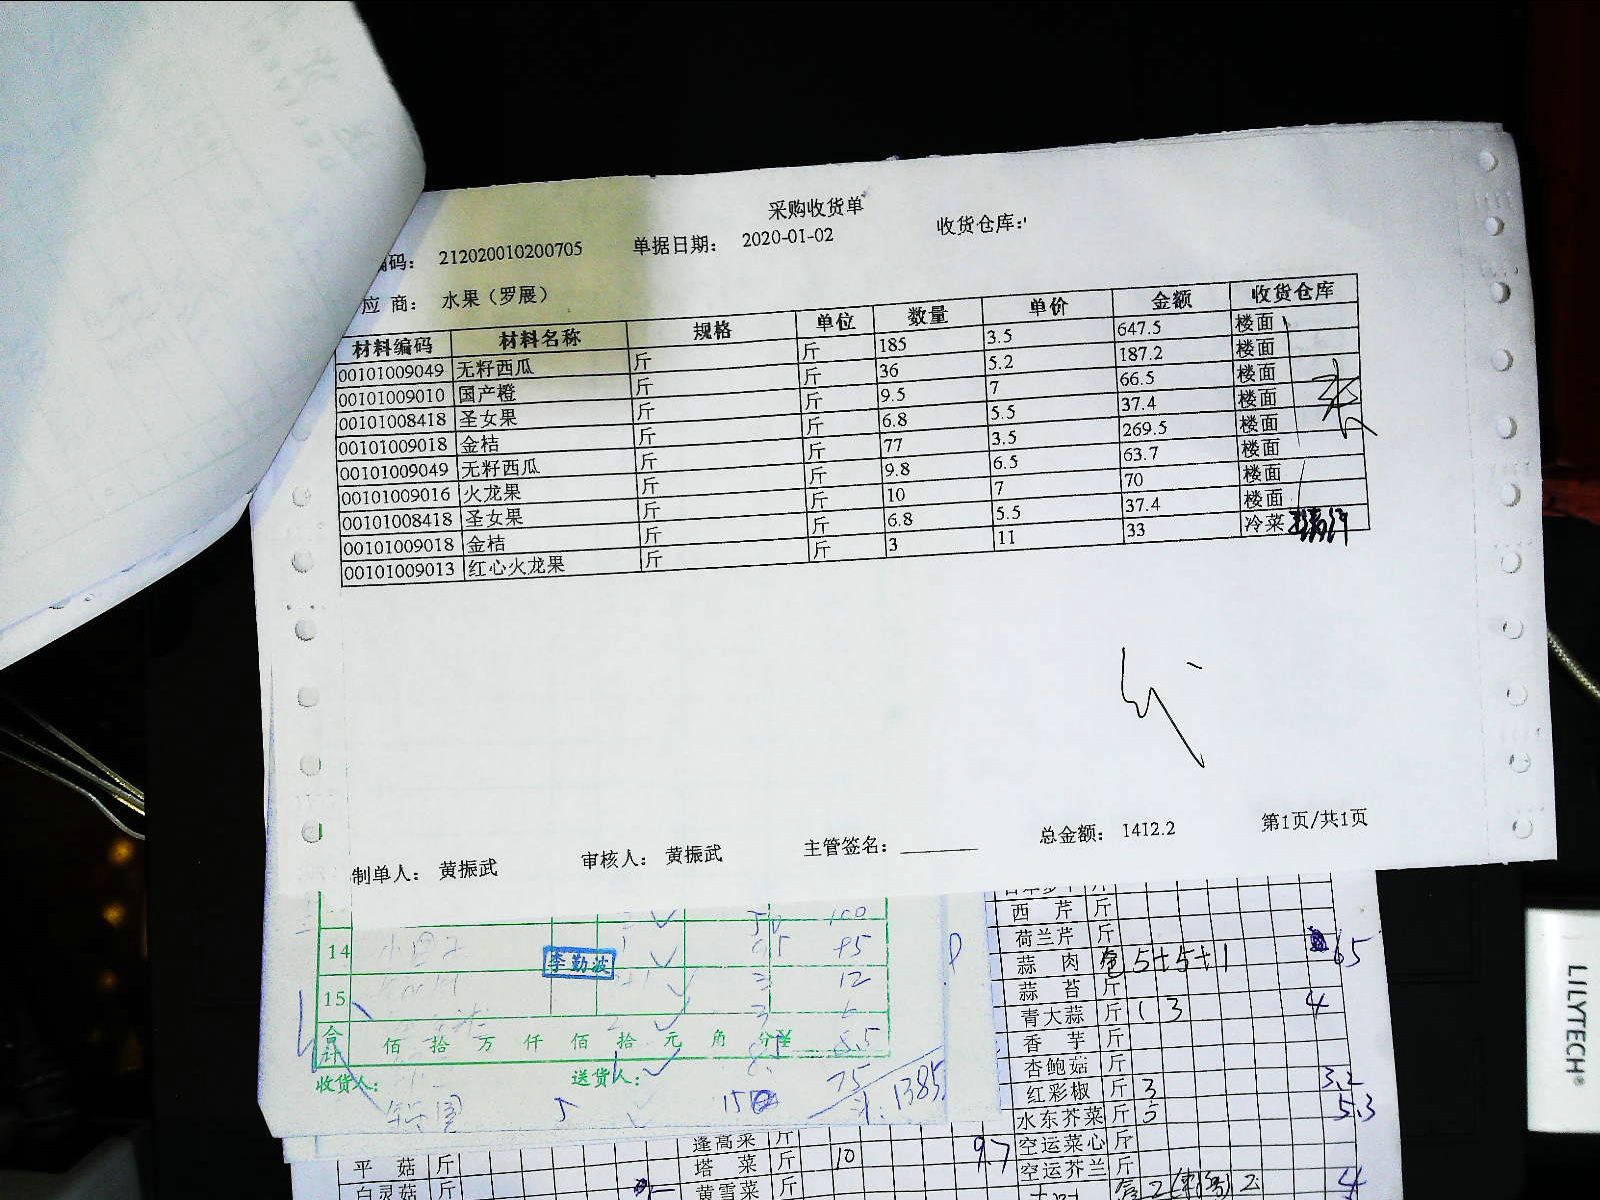 采购收货单
编码： 212020010200705 单据日期： 2020-01-02 收货仓库:
应 商： 水果（罗展）
材料编码 材料名称 规格 单位 数量 单价 金额 收货仓库
00101009049 无籽西瓜 斤 斤 185 3.5 647.5 楼面
00101009010 国产橙 斤 斤 36 5.2 187.2 楼面
00101008418 圣女果 斤 斤 9.5 7 66.5 楼面
00101009018 金桔 斤 斤 6.8 5.5 37.4 楼面
00101009049 无籽西瓜 斤 斤 77 3.5 269.5 楼面
00101009016 火龙果 斤 斤 9.8 6.5 63.7 楼面
00101008418 圣女果 斤 斤 10 7 70 楼面
00101009018 金桔 斤 斤 6.8 5.5 37.4 楼面
00101009013 红心火龙果 斤 斤 3 11 33 冷菜
制单人： 黄振武 审核人： 黄振武 主管签名： 总金额： 1412.2 第1页/共1页
14
李勤波
15
合计 佰 拾 万 仟 佰 拾 元 角 分
收货人： 送货人：
1385
西 芹 斤
荷兰芹 斤
蒜 肉 5+5+1 65
蒜 苔 斤
青大蒜 斤 13 4
香 芋 斤
杏鲍菇 斤
红彩椒 斤 3 3.2
水东芥菜 斤 5 5.3
空运菜心 斤
空运芥兰 斤
蓬高菜 斤
平 菇 斤 塔 菜 斤 10 9.7
白灵菇 斤 黄雪菜 斤
LILYTECH®